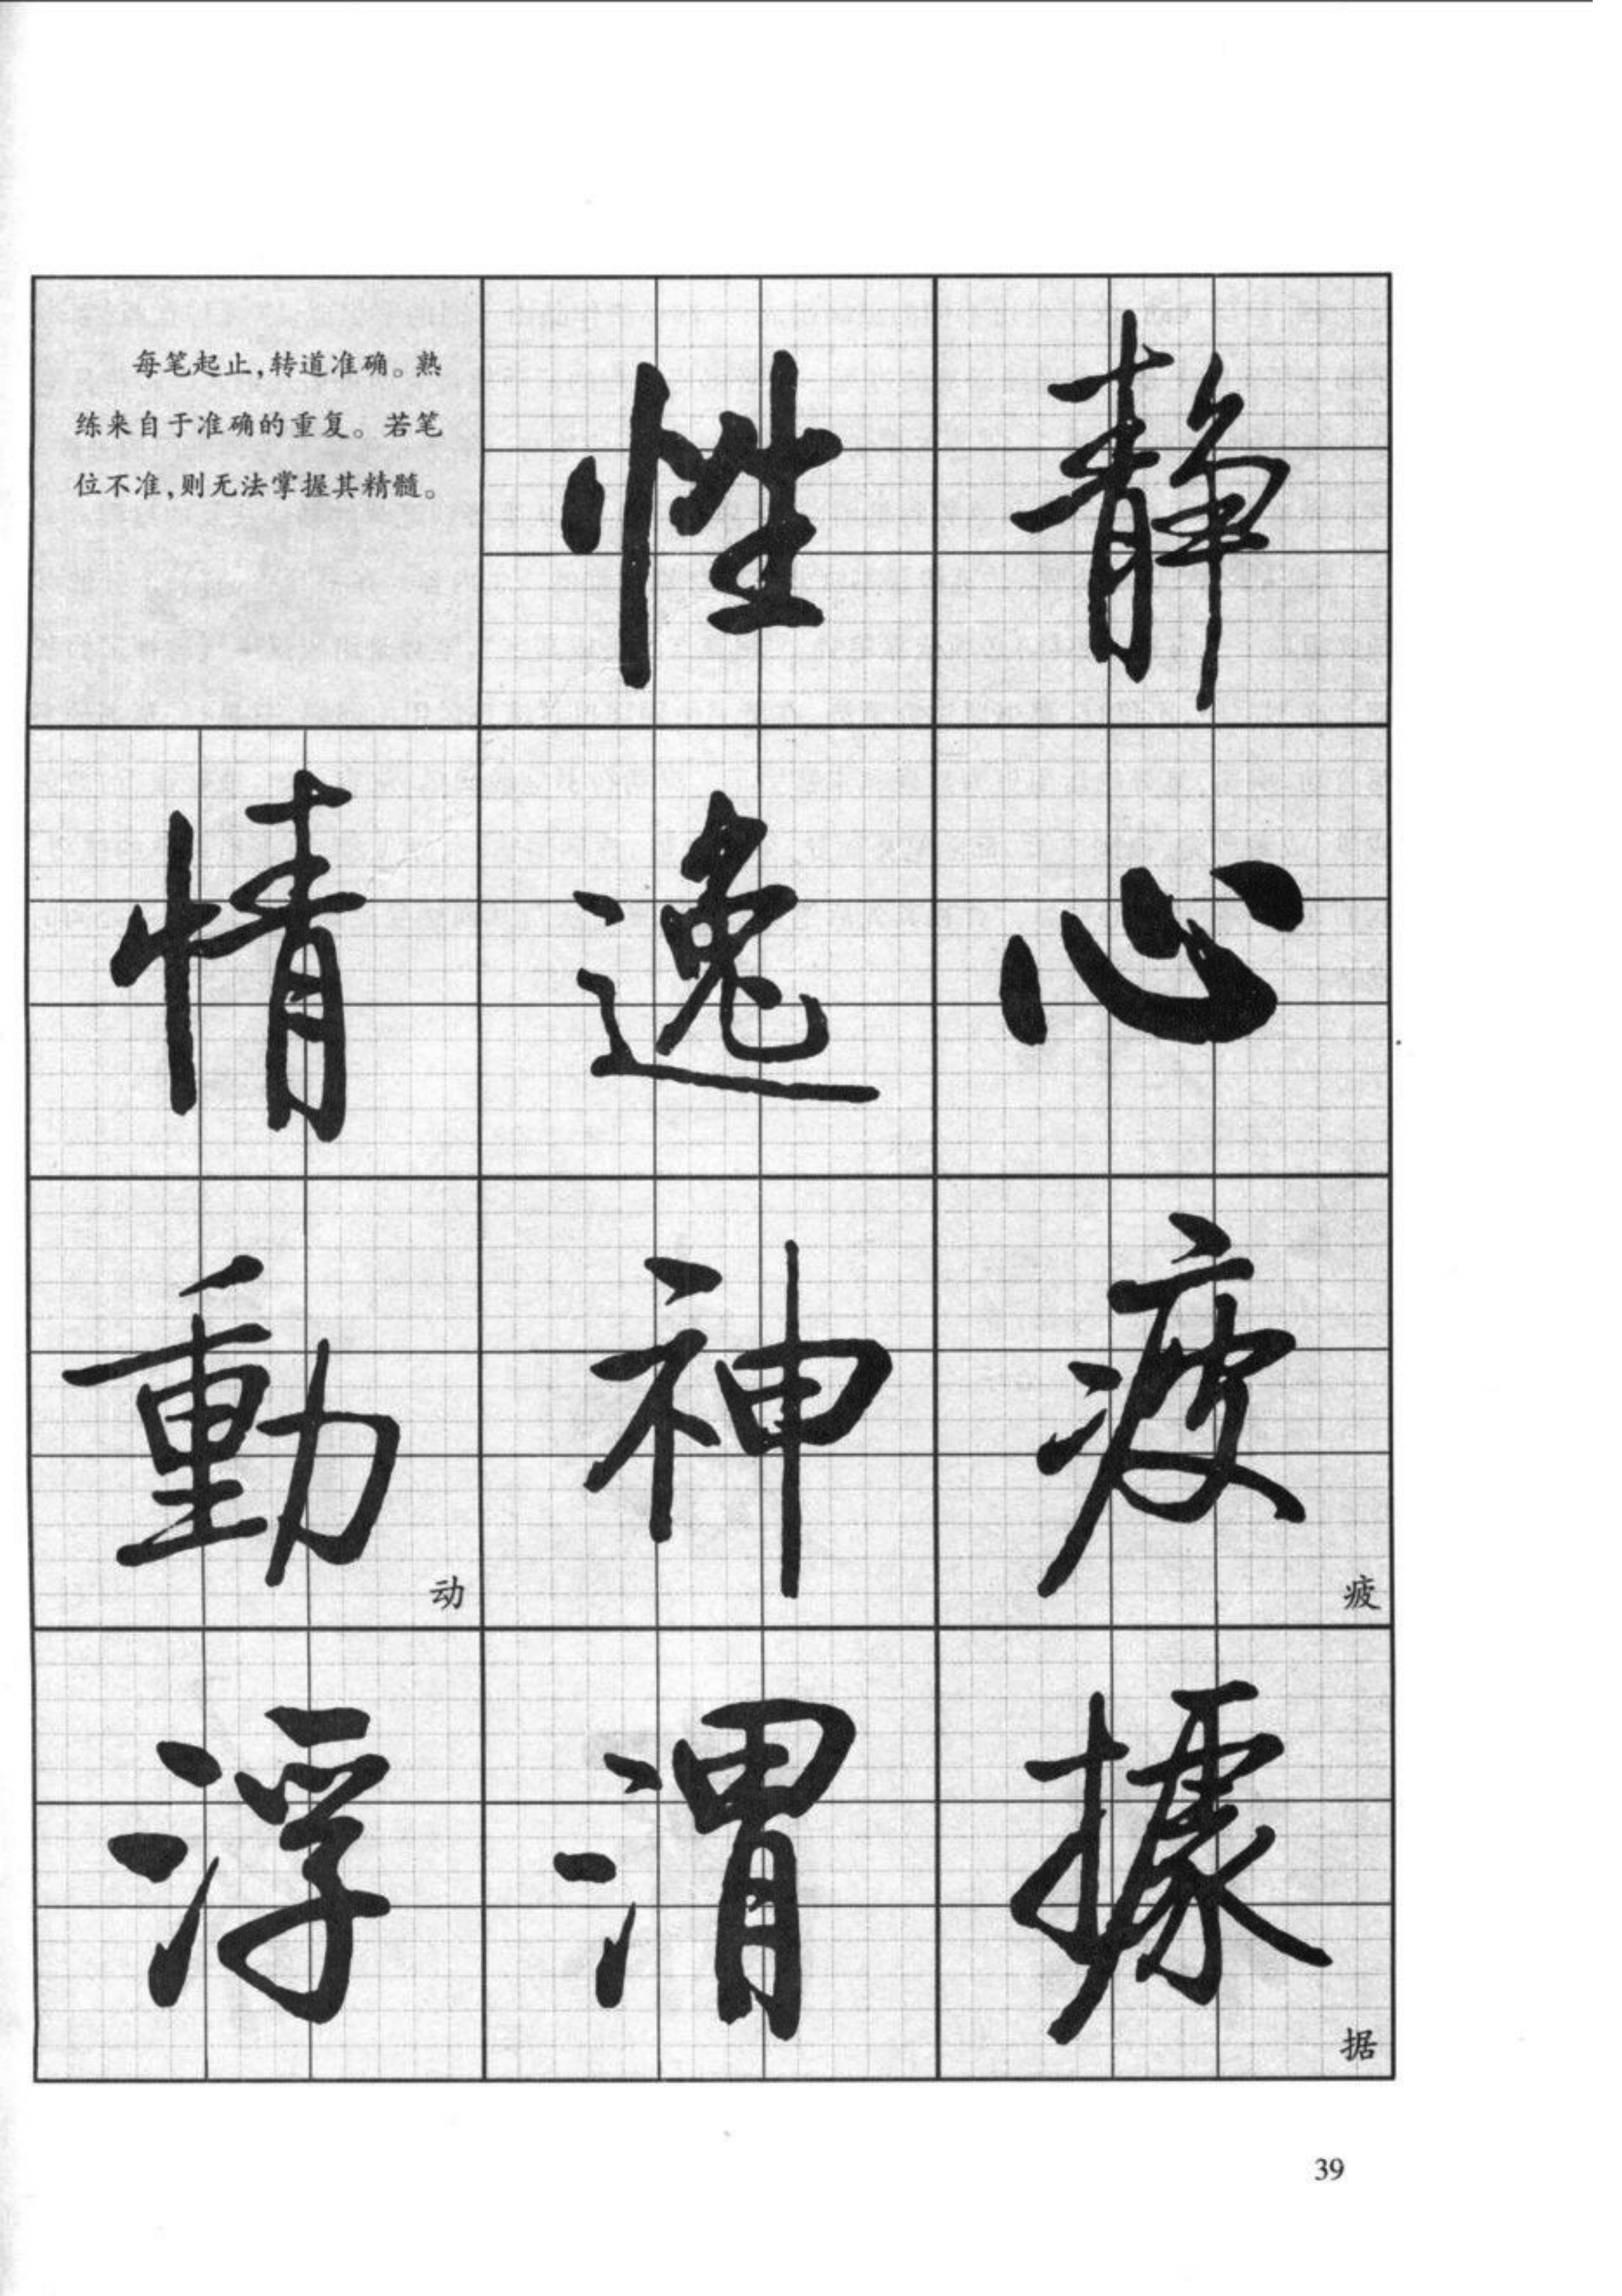 每笔起止,转道准确。熟
练来自于准确的重复。若笔
位不准,则无法掌握其精髓。
性 静
情 逸 心
動 神 疲
动 疲
浮 渭 據
据
39